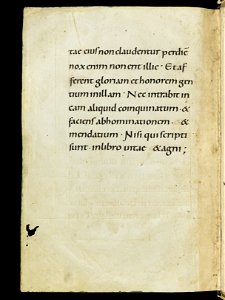 tae eius non claudentur per diē
nox enim non erit illic · Et af
ferent gloriam et honorem gen
tium in illam · Nec intrabit in
eam aliquid coinquinatum · &
faciens abhominationem · &
mendatium · Nisi qui scripti
sunt in libro vitae & agni ;